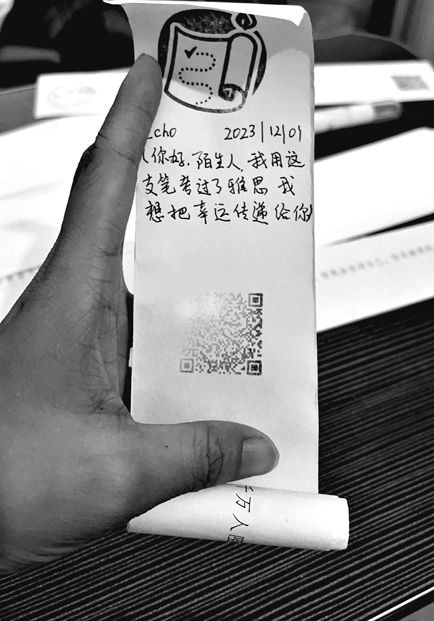 Echo 2023/12/09
(你好,陌生人,我用这
支笔考过了雅思 我
想把幸运传递给你)
千万人